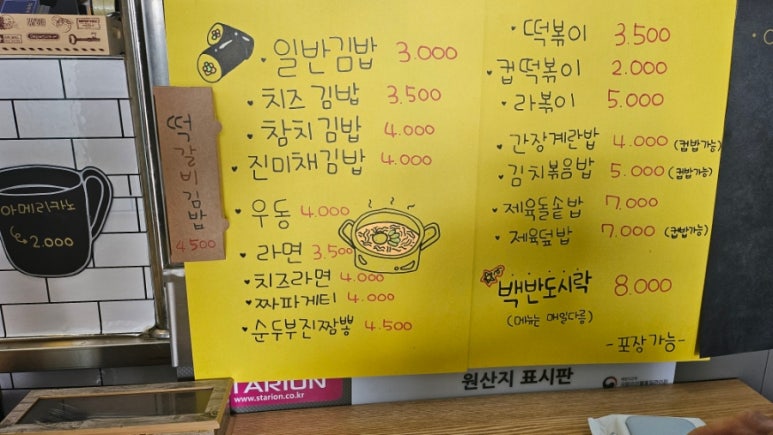 일반김밥 3.000
치즈김밥 3.500
참치김밥 4.000
진미채김밥 4.000
우동 4.000
라면 3.500
치즈라면 4.000
짜파게티 4.000
순두부진짬뽕 4.500
떡볶이 3.500
컵떡볶이 2.000
라볶이 5.000
간장계란밥 4.000 (컵밥가능)
김치볶음밥 5.000 (컵밥가능)
제육돌솥밥 7.000
제육덮밥 7.000 (컵밥가능)
백반도시락 8.000
(메뉴는 매일다름)
-포장가능-
떡갈비김밥
4500
아메리카노
2.000
STARION
www.starion.co.kr
원산지 표시판